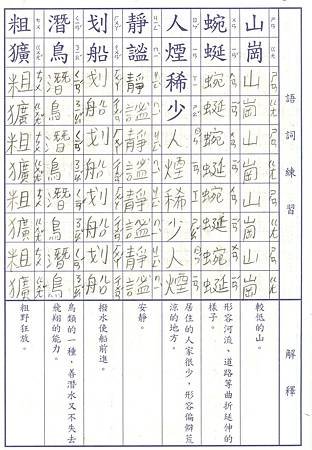 語詞練習
解釋
山崗
山崗山崗山崗山崗
較低的山。
蜿蜒
蜿蜒蜿蜒蜿蜒蜿蜒
形容河流、道路等曲折延伸的
樣子。
人煙稀少
人煙稀少人煙
居住的人家很少,形容偏僻荒
涼的地方。
靜謐
靜謐靜謐靜謐靜謐
安靜。
划船
划船划船划船划船
撥水使船前進。
潛鳥
潛鳥潛鳥潛鳥潛鳥
鳥類的一種,善潛水又不失去
飛翔的能力。
粗獷
粗獷粗獷粗獷粗獷
粗野狂放。